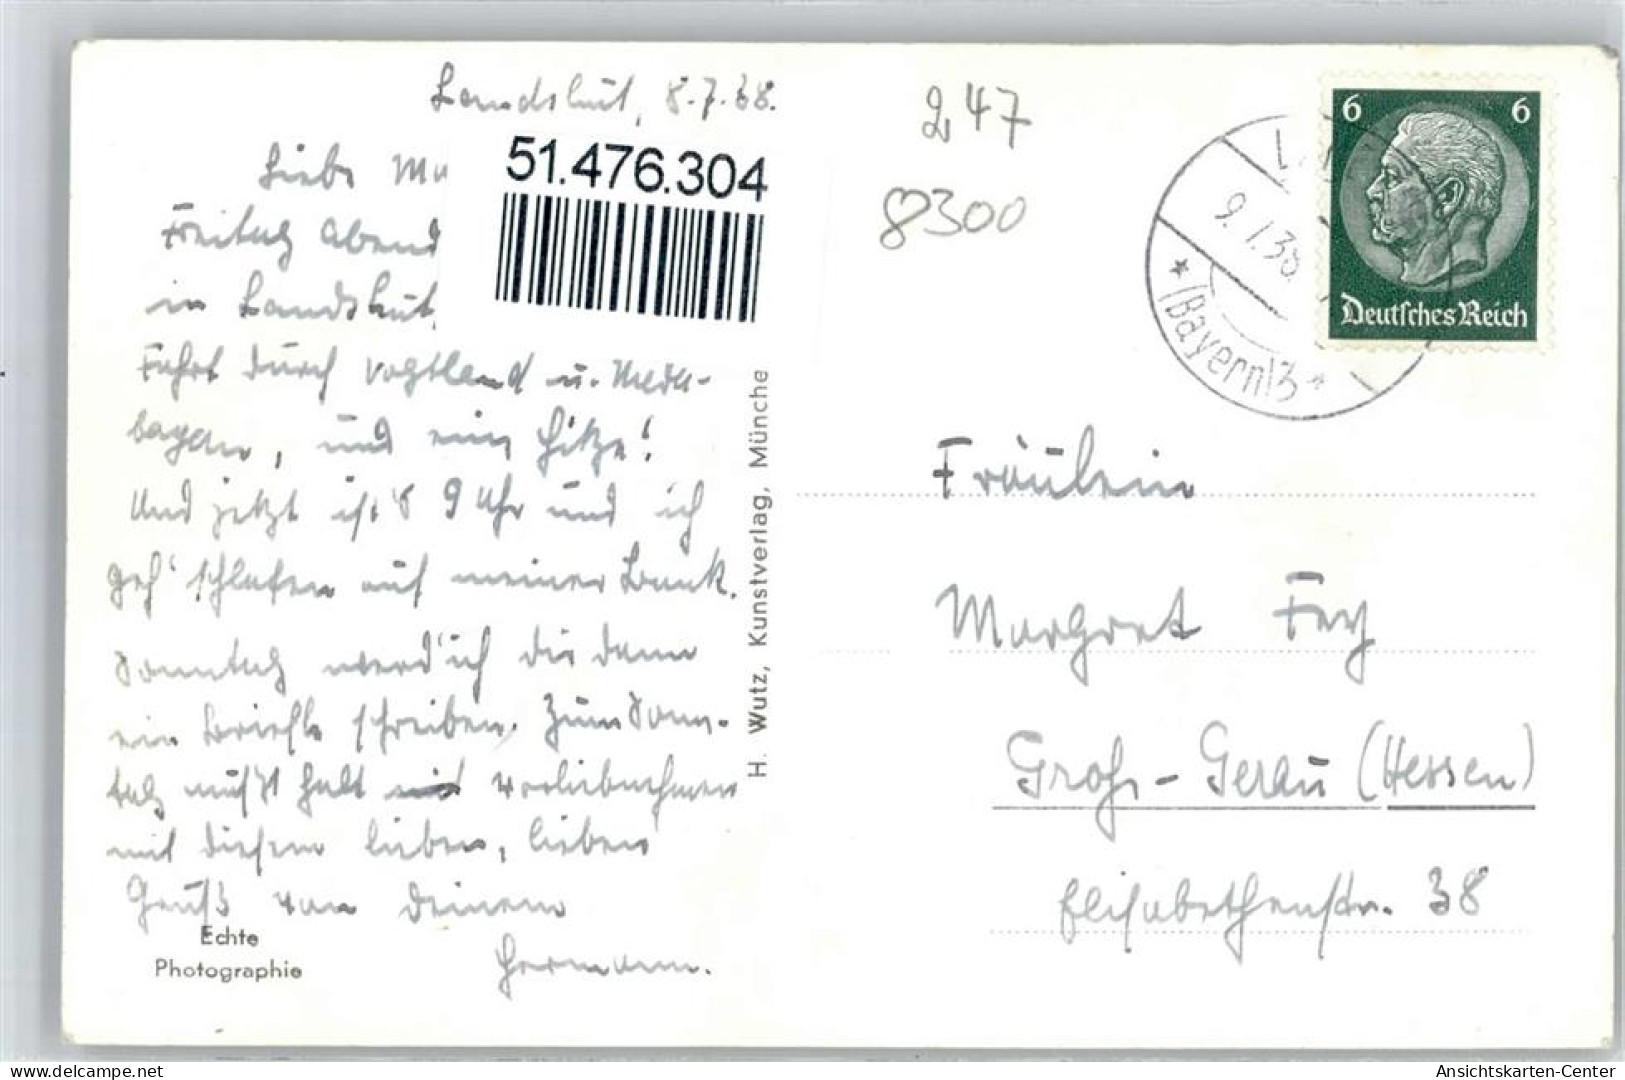 Landshut, 8.7.38.
Liebe Ma
Freitag Abend
in Landshut.
Fahrt durch Vogtland u.
bayern, und eine Hitze!
Und jetzt ist's 9 Uhr und ich
geh' schlafen auf meiner Bank.
Sonntag werd' ich dir dann
ein Briefle schreiben. Zum Sonn-
tag mußt halt mit vorliebnehmen
mit diesem lieben, lieben
Gruß von deinem
Hermann.
Echte
Photographie
51.476.304
H. Wutz, Kunstverlag, Münche
247
8300
9.7.38
(Bayern) 3
6 6
Deutsches Reich
Fräulein
Margret Fey
Groß-Gerau (Hessen)
Elisabethenstr. 38
delcampe.net
Ansichtskarten-Center